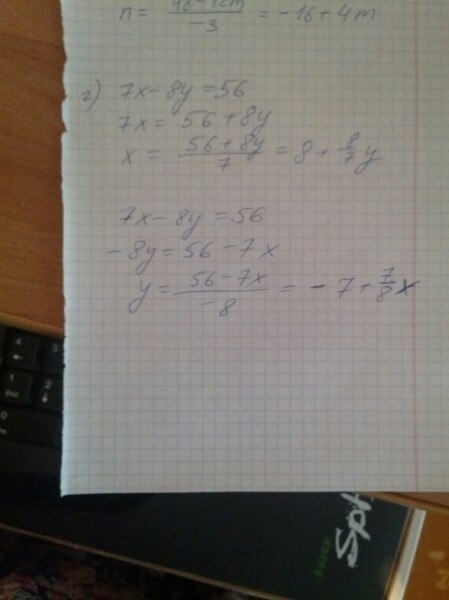 n = 48-12m / -3 = -16+4m
г) 7x-8y=56
7x= 56+8y
x = 56+8y / 7 = 8 + 8/7 y
7x-8y=56
-8y=56-7x
y= 56-7x / -8 = -7+ 7/8 x